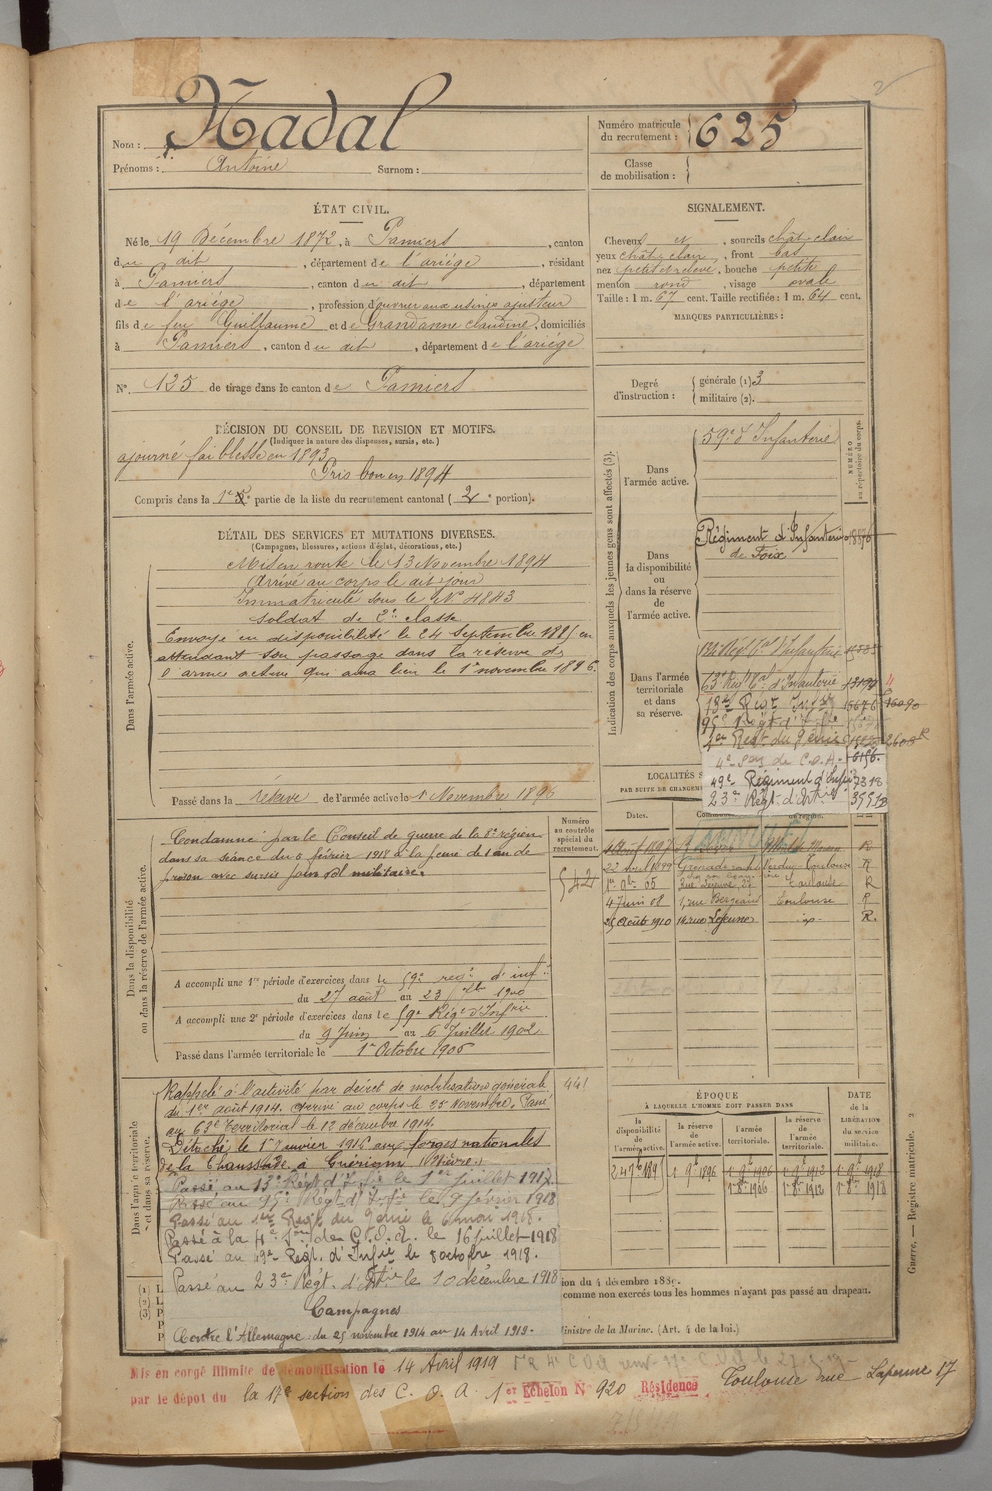 2
Nom : Nadal
Prénoms : Antoine Surnom :
Numéro matricule du recrutement : 625
Classe de mobilisation :
ÉTAT CIVIL.
Né le 19 Décembre 1872, à Pamiers, canton
du dit, département de l'ariège, résidant
à Pamiers, canton du dit, département
de l'ariège, profession d'ouvrier aux usines ajusteur
fils de feu Guillaume et de Grandanne claudine, domiciliés
à Pamiers, canton du dit, département de l'ariège
N° 125 de tirage dans le canton de Pamiers
SIGNALEMENT.
Cheveux et, sourcils chât-clair
yeux chât-clair, front bas
nez petit et relevé, bouche petite
menton rond, visage oval
Taille : 1 m. 67 cent. Taille rectifiée : 1 m. 64 cent.
MARQUES PARTICULIÈRES :
Degré d'instruction : générale (1) 3
militaire (2).
DÉCISION DU CONSEIL DE REVISION ET MOTIFS.
(Indiquer la nature des dispenses, sursis, etc.)
ajourné faiblesse en 1893
Pris bon en 1894
Compris dans la 1re partie de la liste du recrutement cantonal (2e portion).
DÉTAIL DES SERVICES ET MUTATIONS DIVERSES.
(Campagnes, blessures, actions d'éclat, décorations, etc.)
Dans l'armée active.
Mis en route le 13 Novembre 1894
Arrivé au corps le dit jour
Immatriculé sous le N° 4843
soldat de 2e classe
Envoyé en disponibilité le 24 septembre 1895 en
attendant son passage dans la réserve de
l'armée active qui aura lieu le 1er novembre 1896.
Passé dans la réserve de l'armée active le 1 Novembre 1896
Indication des corps auxquels les jeunes gens sont affectés (3).
NUMÉRO au répertoire du corps.
Dans l'armée active.
59e d'Infanterie
Dans la disponibilité ou dans la réserve de l'armée active.
Régiment d'Infanterie
de Foix
Dans l'armée territoriale et dans sa réserve.
63e Régt tal d'Infanterie
95e Régt d'Infie
1er Régt du génie
4e Son de C.O.A. 6196.
49e Régiment d'Infie 7318
23e Régt d'Artie
Dans la disponibilité ou dans la réserve de l'armée active.
Condamné par le Conseil de guerre de la 8e région
dans sa séance du 5 février 1918 à la peine de 1 an de
prison avec sursis pour vol militaire.
Numéro au contrôle spécial du recrutement.
542
A accompli une 1re période d'exercices dans le 59e regt d'inf
du 27 août au 23 7bre 1900
A accompli une 2e période d'exercices dans le 59e Régt d'Infrie
du 9 Juin au 6 Juillet 1902
Passé dans l'armée territoriale le 1er Octobre 1906
LOCALITÉS
PAR SUITE DE CHANGEM
Dates.
22 avril 1899 Grenade Verdun-Toulouse R
1er 8bre 05 Toulouse R
4 Juin 08 1, rue Bergeaud Toulouse R
25 Août 1910 14 rue Lejeune R.
Dans l'armée territoriale et dans sa réserve.
Rappelé à l'activité par décret de mobilisation générale
du 1er août 1914. Arrivé au corps le 25 Novembre. Passé
au 63e Territorial le 12 décembre 1914.
Détaché le 1er Janvier 1916 aux forges nationales
de la Chaussade à Guérigny (Nièvre).
Passé au 13e Régt d'Infie le 1er juillet 1917.
Passé au 95e Régt d'Infie le 9 février 1918
Passé au 1er Régt du Génie le 6 mai 1918.
Passé à la 4e Son des C.O.A. le 16 juillet 1918
Passé au 49e Régt. d'Infie le 8 octobre 1918.
Passé au 23e Régt. d'Artie le 10 décembre 1918
Campagnes
Contre l'Allemagne du 25 novembre 1914 au 14 Avril 1919.
441
ÉPOQUE
À LAQUELLE L'HOMME DOIT PASSER DANS
la disponibilité de l'armée active.
la réserve de l'armée active.
l'armée territoriale.
la réserve de l'armée territoriale.
DATE de la LIBÉRATION du service militaire.
1 9bre 1896 1 9bre 1906 1 9bre 1912 1 9bre 1918
1er 8bre 1906 1er 8bre 1912 1er 8bre 1918
Guerre. — Registre matricule. 2
ion du 4 décembre 1889.
comme non exercés tous les hommes n'ayant pas passé au drapeau.
Ministre de la Marine. (Art. 4 de la loi.)
Mis en congé illimité de démobilisation le 14 Avril 1919
par le dépôt du la 17e section des C. O. A. 1er Echelon N° 920 Résidence Toulouse rue Laperme 17